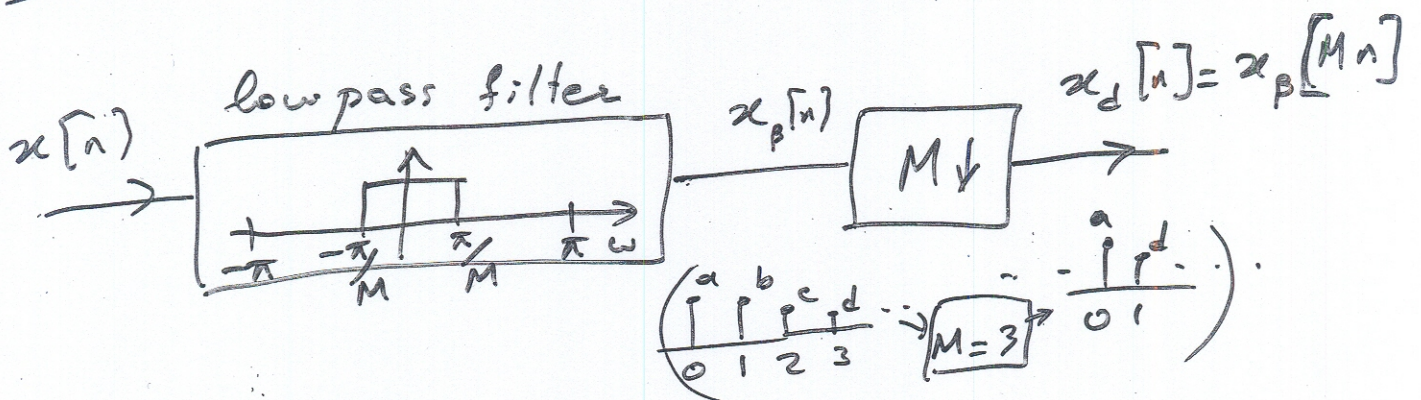 lowpass filter
x[n]
-π -π/M π/M π ω
x_β[n]
M↓
x_d[n] = x_β[Mn]
a b c d ...
0 1 2 3
M=3
.. a d ...
0 1